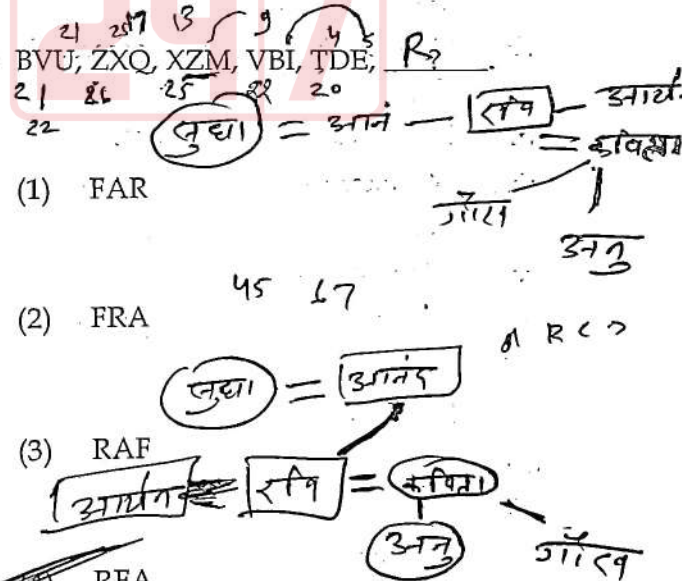 21 25 17 13 9 4 5
BVU, ZXQ, XZM, VBI, TDE, R?
21 26 25 22 20
22 सुधा = आनं — रवि — आर्य
=
(1) FAR
अनु
45 17
(2) FRA
सुधा = आनंद
(3) RAF
आर्यन रवि = कविता
अनु
RFA